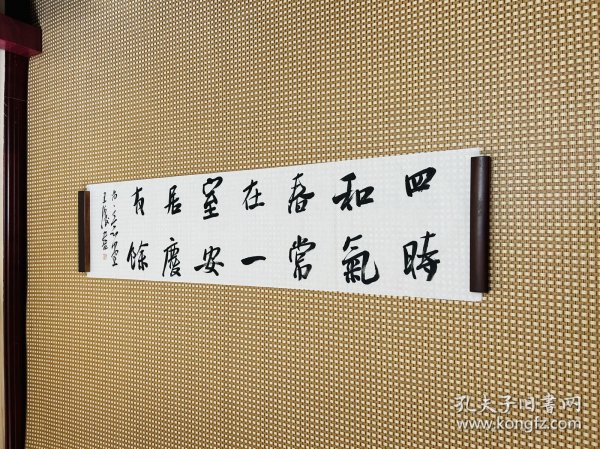 四時
和氣
春常
在一
室安
居慶
有餘
孔夫子旧書网
www.kongfz.com